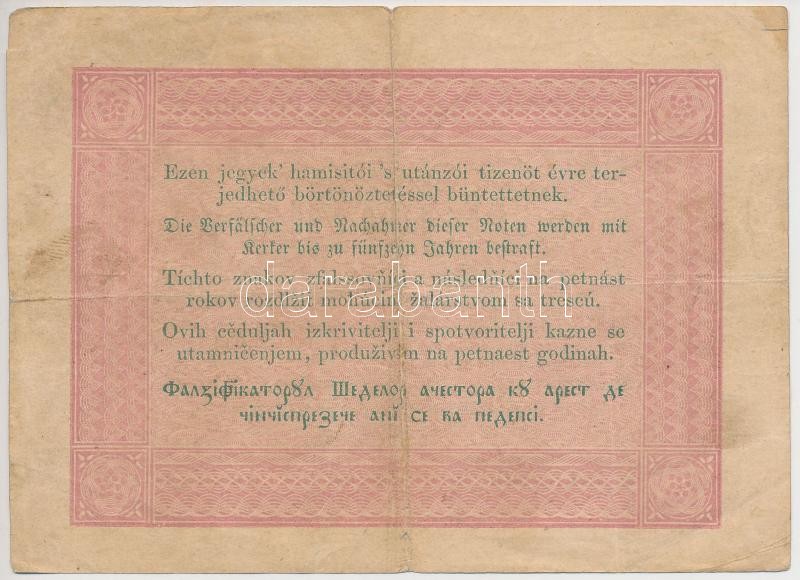 Ezen jegyek' hamisitói 's utánzói tizenöt évre ter-
jedhető börtönöztetéssel büntettetnek.
Die Verfälscher und Nachahmer dieser Noten werden mit
Kerker bis zu fünfzehn Jahren bestraft.
Tíchto znakov zfalssovňíci a následňíci na petnást
rokov rozďižiť mohúcim žalárstvom sa trescú.
darabanth
Ovih cěduljah izkrivitelji i spotvoritelji kazne se
utamničenjem, produživim na petnaest godinah.
Фалꙁіфікаторꙋл Шеделор ачестора кꙋ арест де
чінчіспреꙁече анї се ва педепсі.